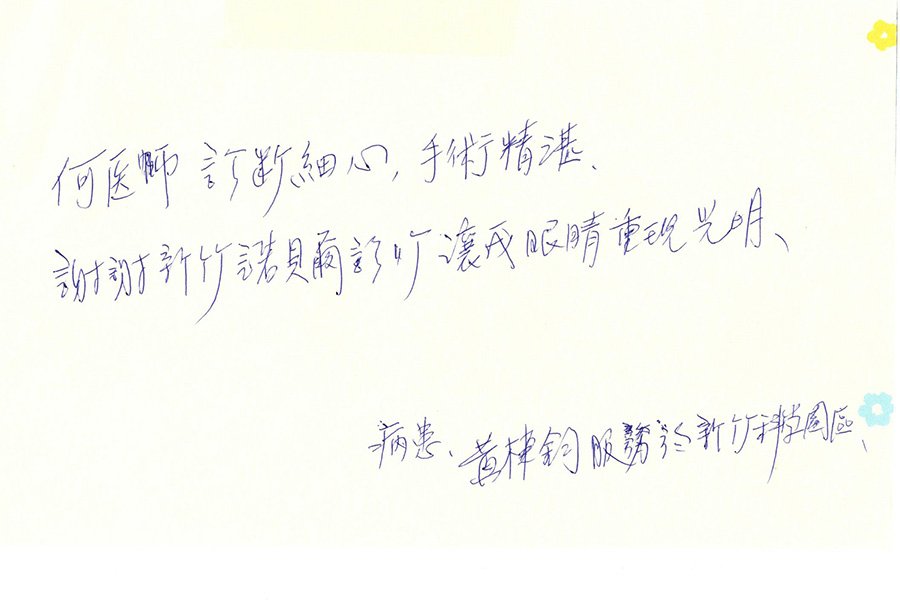 何医師 診断細心,手術精湛、
謝謝新竹諾貝爾診所讓我眼睛重現光明、
病患、黃棟鈞服務於新竹科技園區、